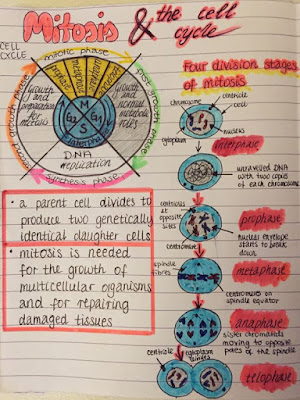 Mitosis & the cell cycle
CELL CYCLE
mitotic phase
prophase
metaphase
anaphase
telophase
first growth phase
Growth and normal metabolic roles
second growth phase
Growth and preparation for mitosis
M
G1
G2
S
interphase
DNA replication
synthesis phase
• a parent cell divides to
produce two genetically
identical daughter cells
• mitosis is needed
for the growth of
multicellular organisms
and for repairing
damaged tissues
Four division stages
of mitosis
chromosome
centriole
cell
cytoplasm
nucleus
interphase
unravelled DNA
with two copies
of each chromosome
centriols at
opposite
sites
prophase
nuclear envelope
starts to break
down
centromere
metaphase
spindle
fibres
centromeres on
spindle equator
anaphase
sister chromatids
moving to opposite
poles of the spindle
centriole
cytoplasm
telophase